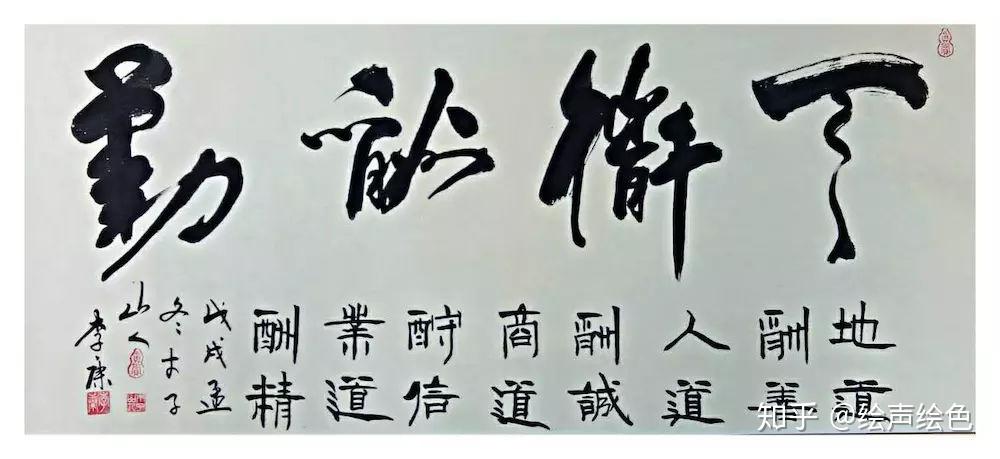 天衜酬勤
地道
酬善
人道
酬誠
商道
酬信
業道
酬精
戊戌孟
冬木子
山人
李康
知乎 @绘声绘色